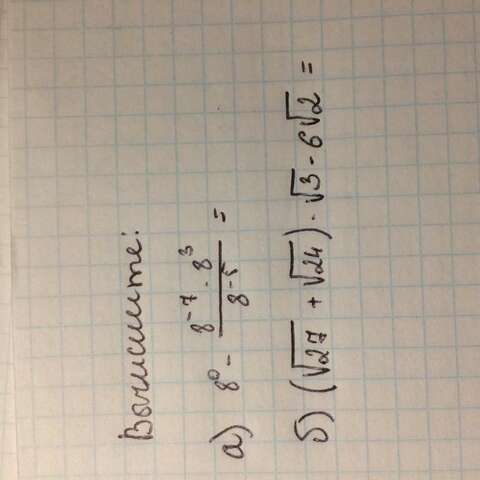 Вычислите:
а) 8⁰ - (8⁻⁷ · 8³)/8⁻⁵ =
б) (√27 + √24) · √3 - 6√2 =